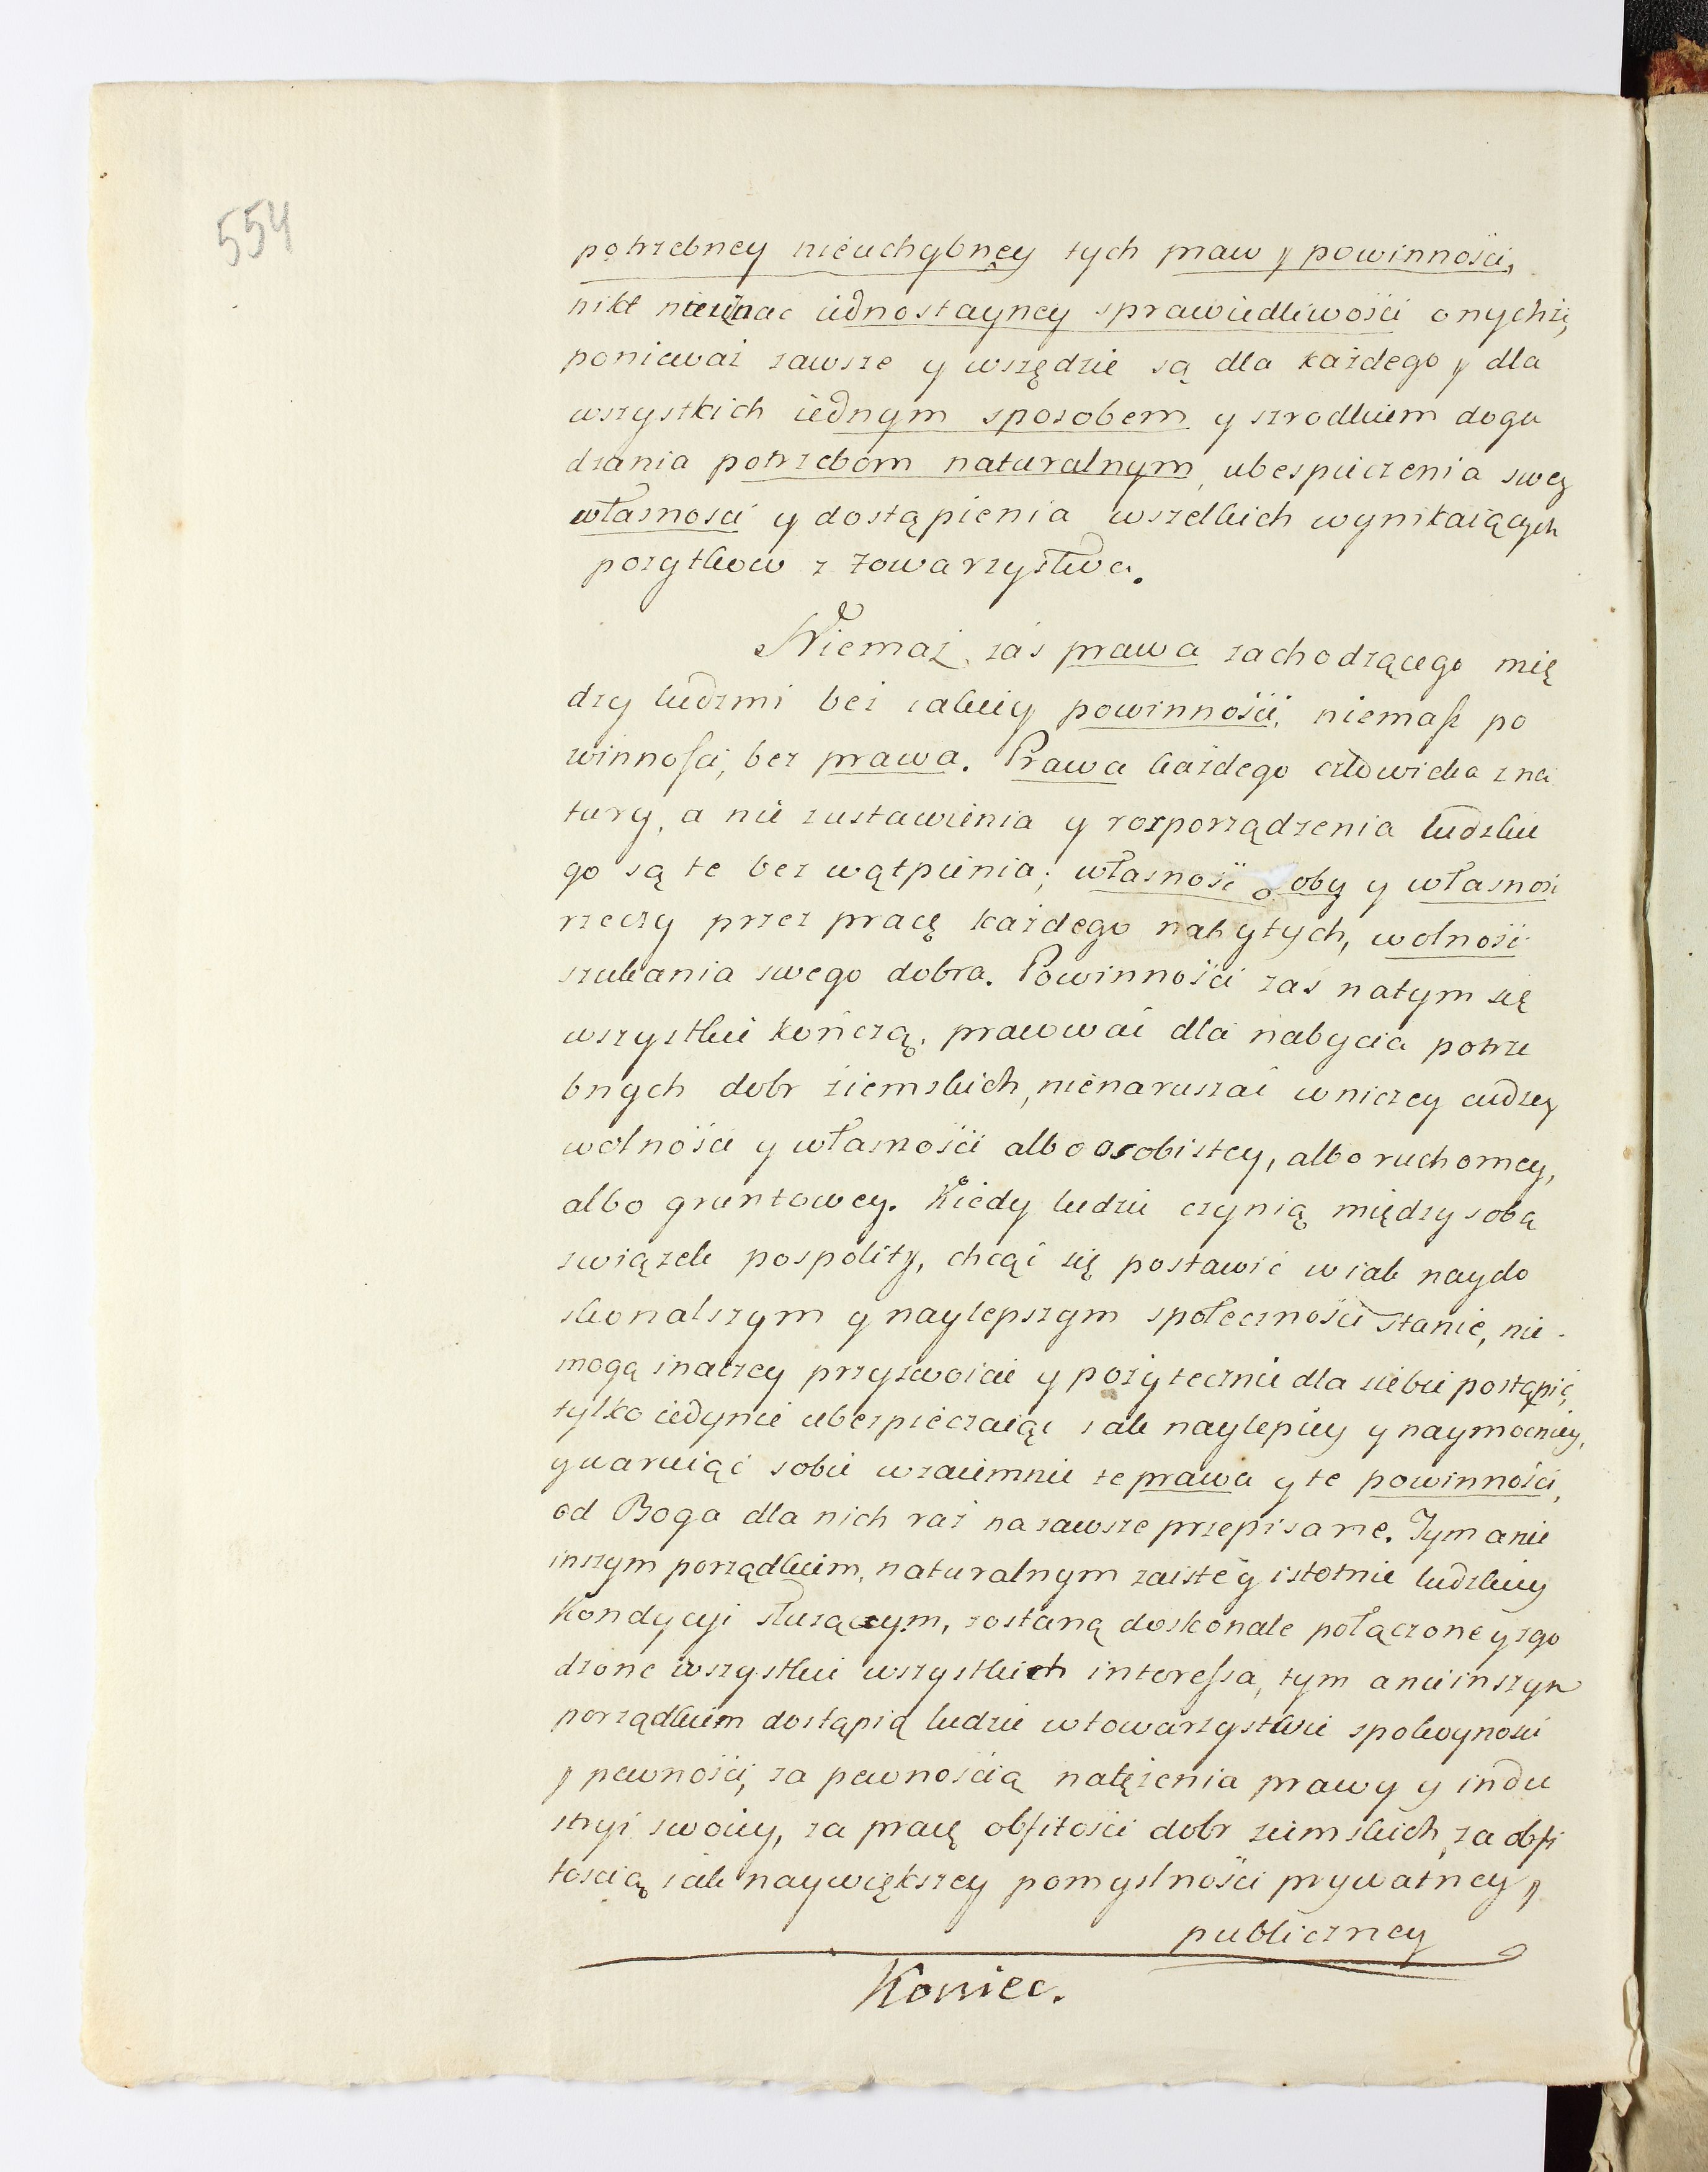 554
potrzebney nieuchybney tych praw y powinności,
nikt nieznać iednostayney sprawiedliwości onychże,
ponieważ zawsze y wszędzie są dla każdego y dla
wszystkich iednym sposobem y szrodkiem doga
dzania potrzebom naturalnym, ubespieczenia swey
własności y dostąpienia wszelkich wynikaiących
pożytkow z towarzystwa.
Niemaż zaś prawa zachodzącego mię
dzy ludźmi bez iakiey powinności, niemasz po
winności, bez prawa. Prawa każdego człowieka z na
tury, a nie z ustawienia y rozporządzenia ludzkie
go są te bez wątpienia; własność osoby y własność
rzeczy przez pracę każdego nabytych, wolność
szukania swego dobra. Powinności zaś natym się
wszystkie kończą, pracować dla nabycia potrze
bnych dobr ziemskich, nienaruszać wniczey cudzey
wolności y własności albo osobistey, albo ruchomey,
albo gruntowey. Kiedy ludzie czynią między sobą
związek pospolity, chcąc się postawić w iak naydo
skonalszym y naylepszym społeczności stanie, nie
mogą inaczey przyzwoicie y pożytecznie dla siebie postąpić,
tylko iedynie ubezpieczaiąc iak naylepiey y naymocniey,
y waruiąć sobie wzaiemnie te prawa y te powinności,
od Boga dla nich raz na zawsze przepisane. Tym a nie
inszym porządkiem, naturalnym zaiste y istotnie ludzkiey
Kondycyi służącym, zostaną doskonale połączone y zgo
dzone wszystkie wszystkich interessa, tym a nie inszym
porządkiem dostąpią ludzie w towarzystwie spokoyności
y pewności, za pewnością natężenia pracy y indu
stryi swoiey, za pracą obfitości dobr ziemskich, za obfi
tością iak naywiększey pomyslności prywatney y
publiczney
Koniec.